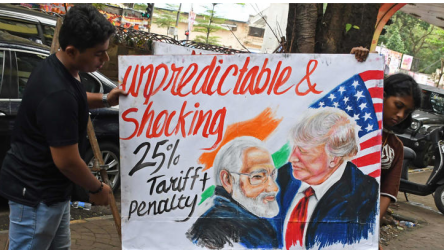 unpredictable &
shocking
25%
Tariff +
penalty